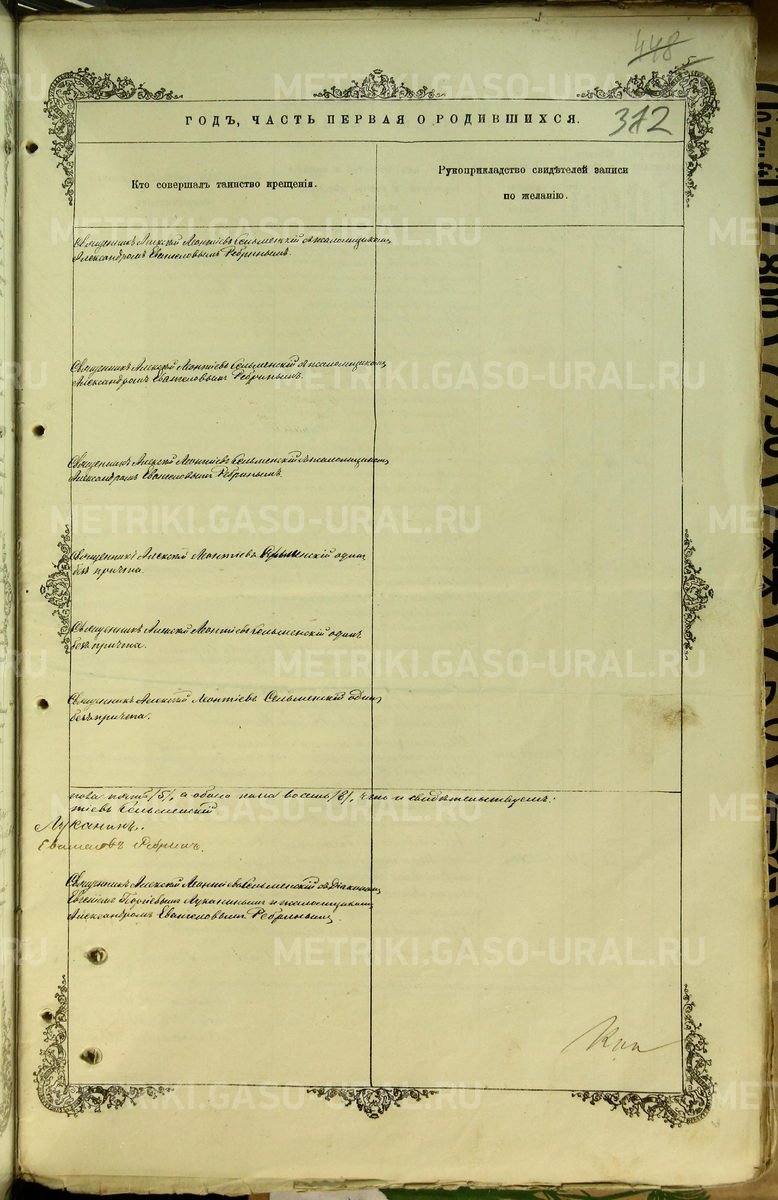 448
ГОДЪ, ЧАСТЬ ПЕРВАЯ О РОДИВШИХСЯ.
372
Кто совершалъ таинство крещенія.
Рукоприкладство свидѣтелей записи
по желанію.
Священникъ Алексѣй Леонтіевъ Сельменскій съ псаломщикомъ
Александромъ Евангеловымъ Ребринымъ.
Священникъ Алексѣй Леонтіевъ Сельменскій съ псаломщикомъ
Александромъ Евангеловымъ Ребринымъ.
Священникъ Алексѣй Леонтіевъ Сельменскій съ псаломщикомъ
Александромъ Евангеловымъ Ребринымъ.
Священникъ Алексѣй Леонтіевъ Сельменскій одинъ
безъ причта.
Священникъ Алексѣй Леонтіевъ Сельменскій одинъ
безъ причта.
Священникъ Алексѣй Леонтіевъ Сельменскій одинъ
безъ причта.
пола пять /5/, а обоего пола восемь /8/, чемъ и свидѣтельствуемъ:
тіевъ Сельменскій
Луканинъ.
Евангеловъ Ребринъ.
Священникъ Алексѣй Леонтіевъ Сельменскій съ діакономъ
Евгеніемъ Луканинымъ и псаломщикомъ
Александромъ Евангеловымъ Ребринымъ.
METRIKI.GASO-URAL.RU